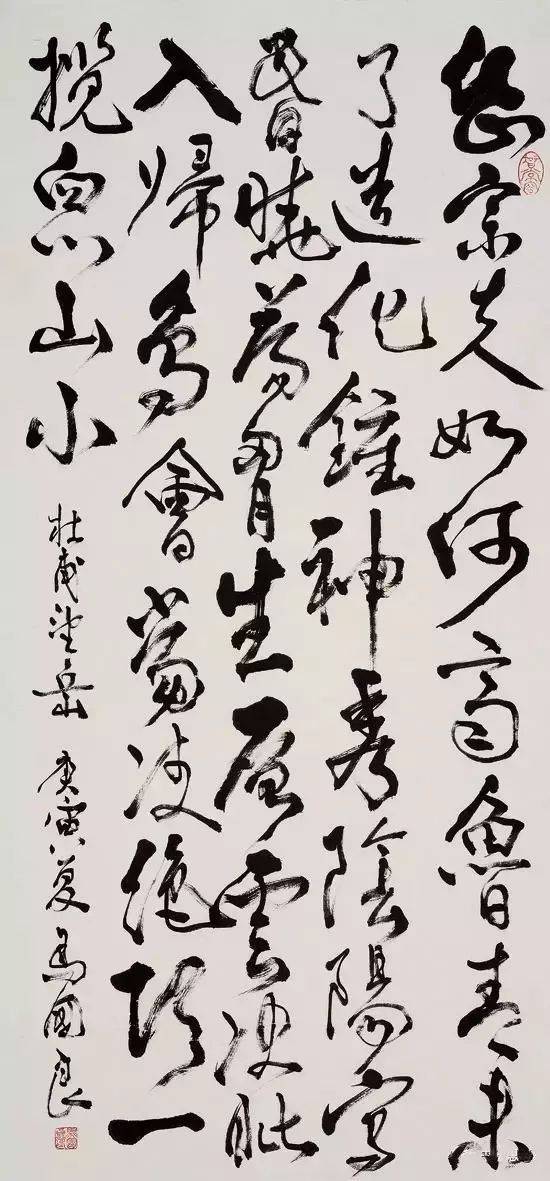 岱宗夫如何齊魯青未
了造化鍾神秀陰陽割
昏曉蕩胷生層雲決眦
入歸鳥會當凌絕頂一
攬眾山小
杜甫望岳 庚寅夏馬國良